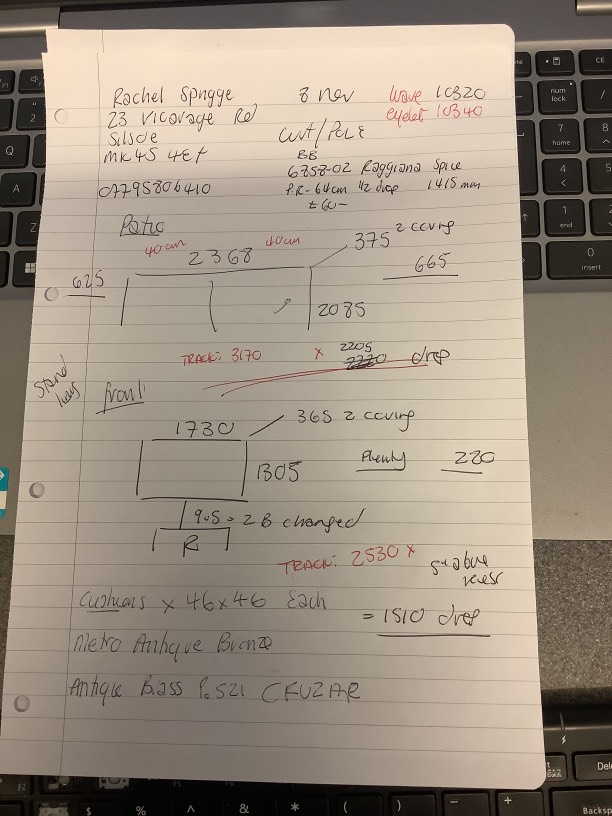 Rachel Sprygge 8 Nov Wave 10320
23 Vicarage Rd eyelet 10340
Silsoe Curt/Pole
MK45 4EF BB
6858-02 Raggiana Spice
07795806410 P.R-64cm 1/2 drop 1415mm
£60-
Patio
40cm 2368 40cm 375 2 coving
625 665
2085
TRACK: 3170 x 2205 drop
Stand
front
1730 365 2 coving
1305 Plenty 220
905 = 2B changed
R
TRACK: 2530 x above
recess
Cushions x 46x46 Each
= 1510 drop
Metro Antique Bronze
Antique Brass P.521